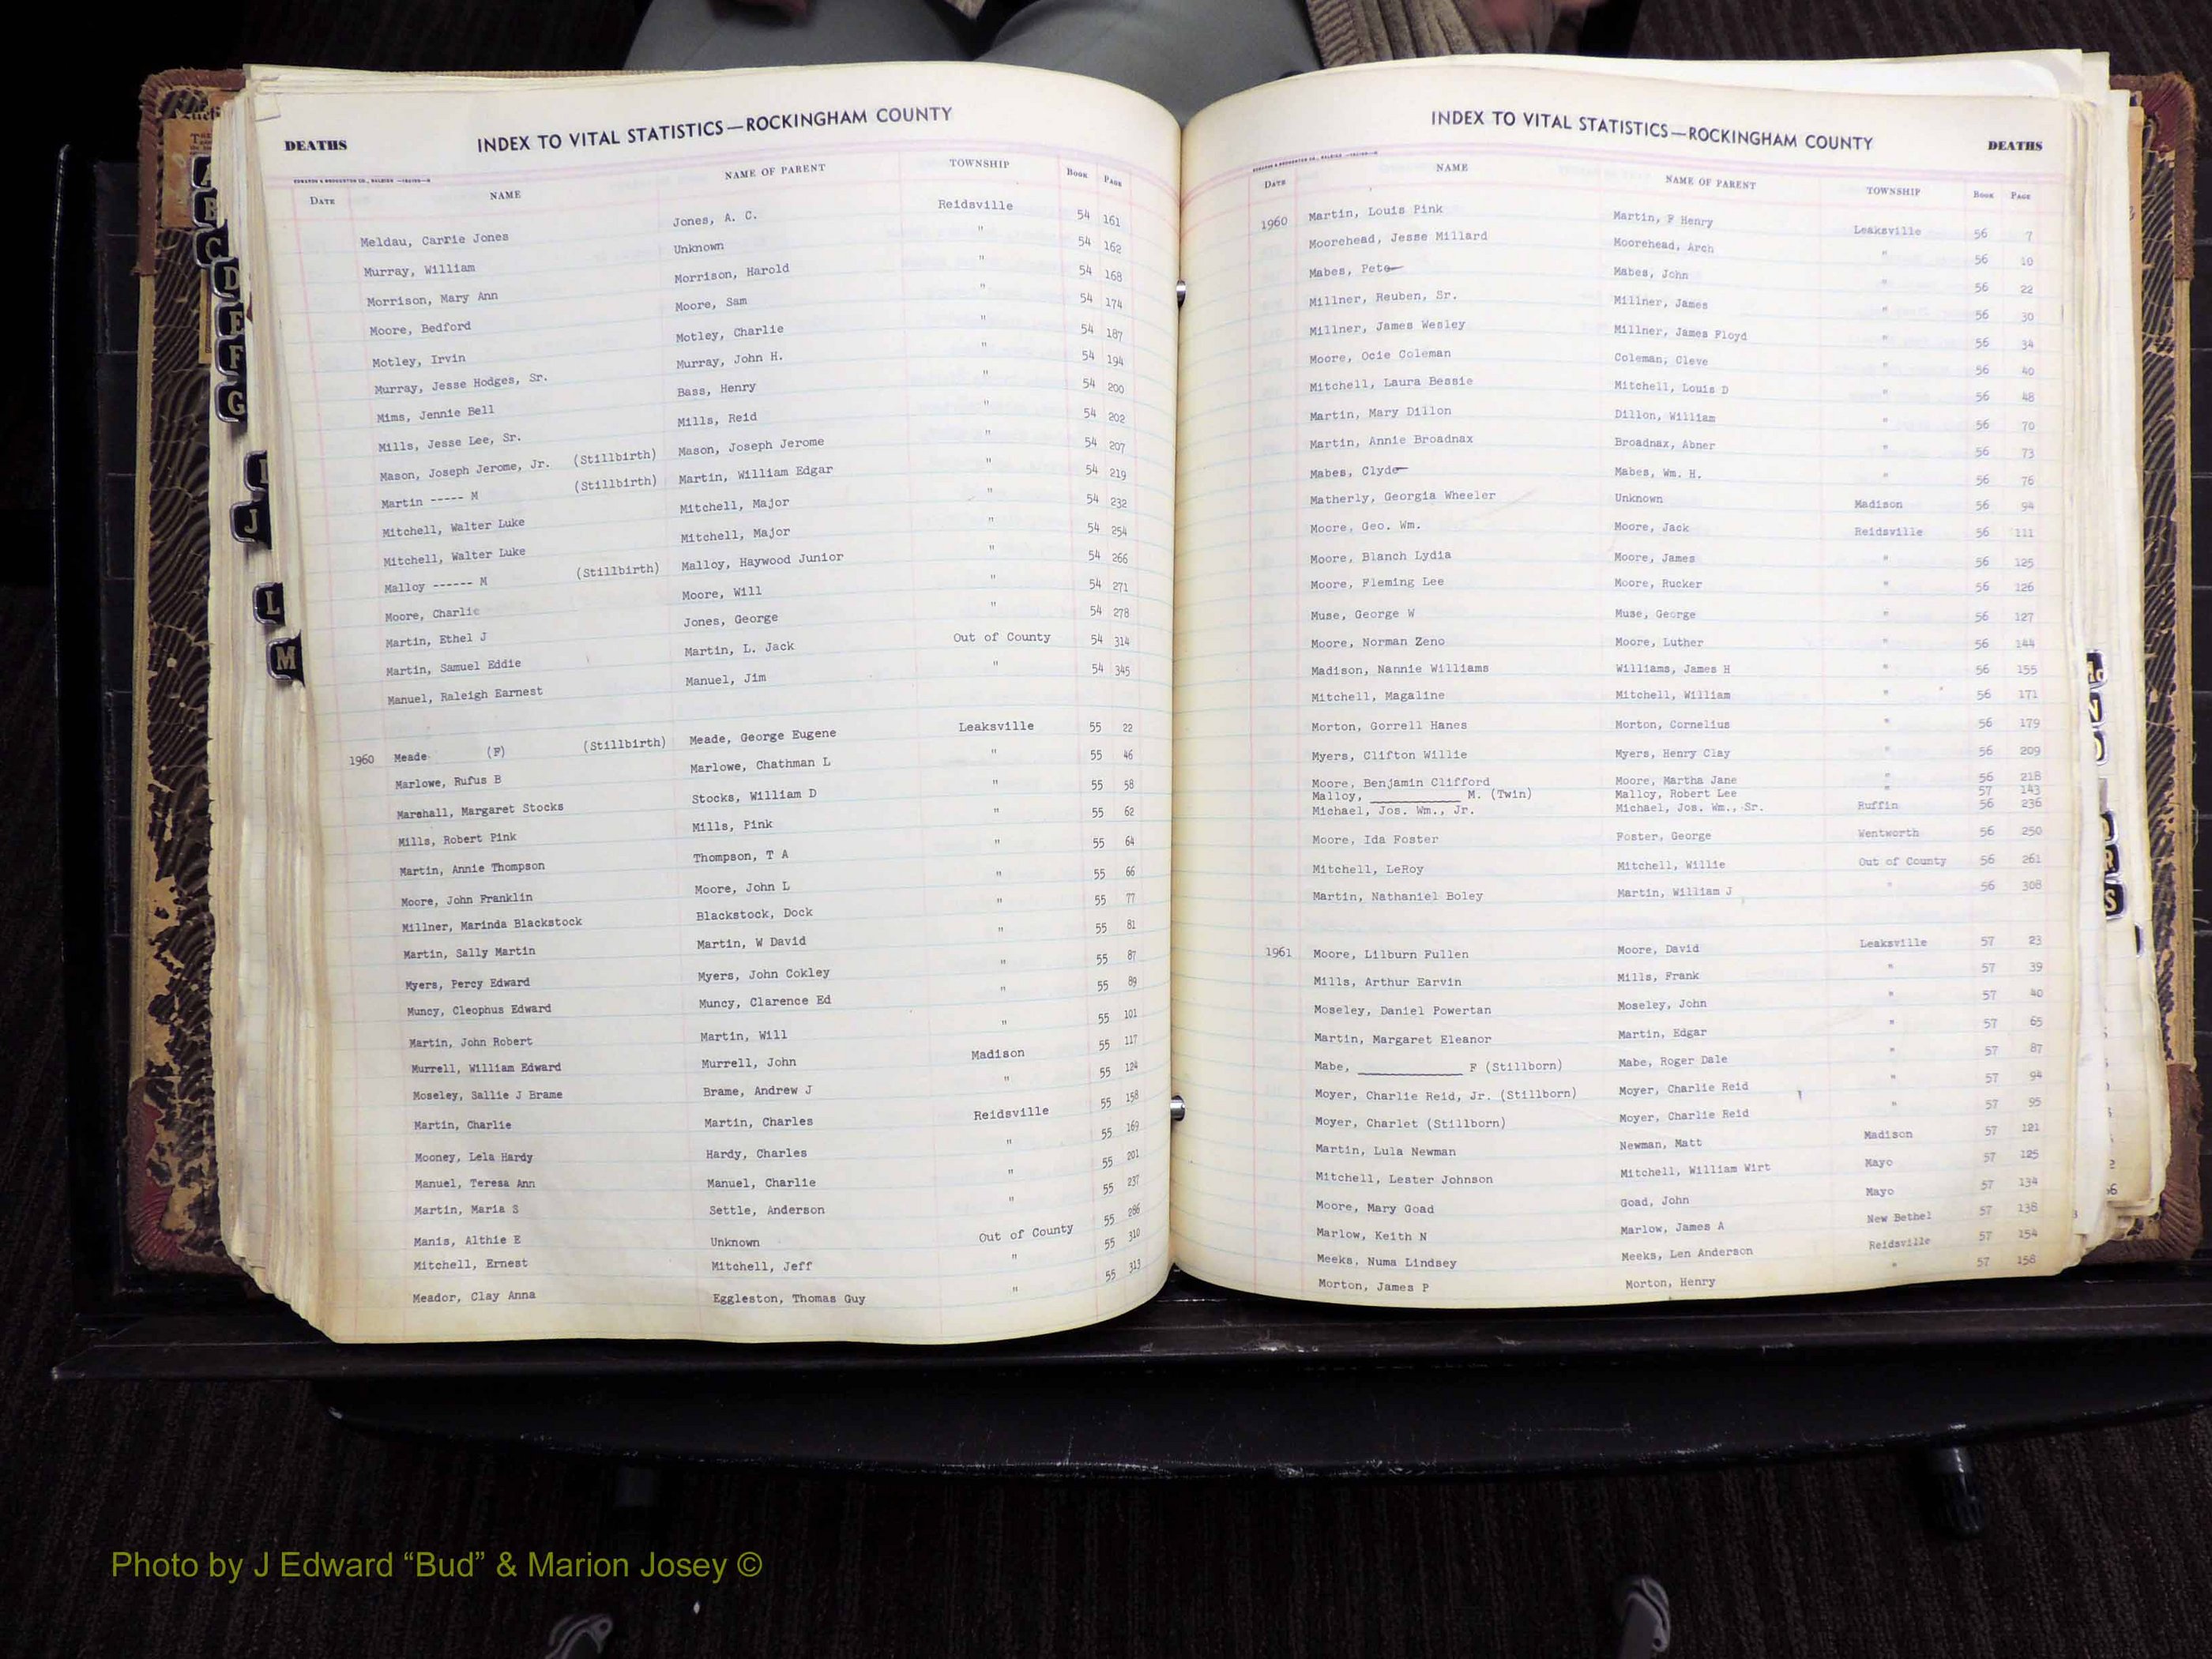 DEATHS INDEX TO VITAL STATISTICS—ROCKINGHAM COUNTY
DATE NAME NAME OF PARENT TOWNSHIP BOOK PAGE
Meldau, Carrie Jones Jones, A. C. Reidsville 54 161
Murray, William Unknown " 54 162
Morrison, Mary Ann Morrison, Harold " 54 168
Moore, Bedford Moore, Sam " 54 174
Motley, Irvin Motley, Charlie " 54 187
Murray, Jesse Hodges, Sr. Murray, John H. " 54 194
Mims, Jennie Bell Bass, Henry " 54 200
Mills, Jesse Lee, Sr. Mills, Reid " 54 202
Mason, Joseph Jerome, Jr. (Stillbirth) Mason, Joseph Jerome " 54 207
Martin ----- M (Stillbirth) Martin, William Edgar " 54 219
Mitchell, Walter Luke Mitchell, Major " 54 232
Mitchell, Walter Luke Mitchell, Major " 54 254
Malloy ------ M (Stillbirth) Malloy, Haywood Junior " 54 266
Moore, Charlie Moore, Will " 54 271
Martin, Ethel J Jones, George " 54 278
Martin, Samuel Eddie Martin, L. Jack Out of County 54 314
Manuel, Raleigh Earnest Manuel, Jim " 54 345
1960 Meade (F) (Stillbirth) Meade, George Eugene Leaksville 55 22
Marlowe, Rufus B Marlowe, Chathman L " 55 46
Marshall, Margaret Stocks Stocks, William D " 55 58
Mills, Robert Pink Mills, Pink " 55 62
Martin, Annie Thompson Thompson, T A " 55 64
Moore, John Franklin Moore, John L " 55 66
Millner, Marinda Blackstock Blackstock, Dock " 55 77
Martin, Sally Martin Martin, W David " 55 81
Myers, Percy Edward Myers, John Cokley " 55 87
Muncy, Cleophus Edward Muncy, Clarence Ed " 55 89
Martin, John Robert Martin, Will " 55 101
Murrell, William Edward Murrell, John Madison 55 117
Moseley, Sallie J Brame Brame, Andrew J " 55 124
Martin, Charlie Martin, Charles Reidsville 55 158
Mooney, Lela Hardy Hardy, Charles " 55 169
Manuel, Teresa Ann Manuel, Charlie " 55 201
Martin, Maria S Settle, Anderson " 55 237
Manis, Althie E Unknown Out of County 55 286
Mitchell, Ernest Mitchell, Jeff " 55 310
Meador, Clay Anna Eggleston, Thomas Guy " 55 313
INDEX TO VITAL STATISTICS—ROCKINGHAM COUNTY DEATHS
DATE NAME NAME OF PARENT TOWNSHIP BOOK PAGE
1960 Martin, Louis Pink Martin, F Henry Leaksville 56 7
Moorehead, Jesse Millard Moorehead, Arch " 56 10
Mabes, Pete Mabes, John " 56 22
Millner, Reuben, Sr. Millner, James " 56 30
Millner, James Wesley Millner, James Floyd " 56 34
Moore, Ocie Coleman Coleman, Cleve " 56 40
Mitchell, Laura Bessie Mitchell, Louis D " 56 48
Martin, Mary Dillon Dillon, William " 56 70
Martin, Annie Broadnax Broadnax, Abner " 56 73
Mabes, Clyde Mabes, Wm. H. " 56 76
Matherly, Georgia Wheeler Unknown Madison 56 94
Moore, Geo. Wm. Moore, Jack Reidsville 56 111
Moore, Blanch Lydia Moore, James " 56 125
Moore, Fleming Lee Moore, Rucker " 56 126
Muse, George W Muse, George " 56 127
Moore, Norman Zeno Moore, Luther " 56 144
Madison, Nannie Williams Williams, James H " 56 155
Mitchell, Magaline Mitchell, William " 56 171
Morton, Gorrell Hanes Morton, Cornelius " 56 179
Myers, Clifton Willie Myers, Henry Clay " 56 209
Moore, Benjamin Clifford Moore, Martha Jane " 56 218
Malloy, __________ M. (Twin) Malloy, Robert Lee " 57 143
Michael, Jos. Wm., Jr. Michael, Jos. Wm., Sr. Ruffin 56 236
Moore, Ida Foster Foster, George Wentworth 56 250
Mitchell, LeRoy Mitchell, Willie Out of County 56 261
Martin, Nathaniel Boley Martin, William J " 56 308
1961 Moore, Lilburn Fullen Moore, David Leaksville 57 23
Mills, Arthur Earvin Mills, Frank " 57 39
Moseley, Daniel Powertan Moseley, John " 57 40
Martin, Margaret Eleanor Martin, Edgar " 57 65
Mabe, __________ F (Stillborn) Mabe, Roger Dale " 57 87
Moyer, Charlie Reid, Jr. (Stillborn) Moyer, Charlie Reid " 57 94
Moyer, Charlet (Stillborn) Moyer, Charlie Reid " 57 95
Martin, Lula Newman Newman, Matt Madison 57 121
Mitchell, Lester Johnson Mitchell, William Wirt Mayo 57 125
Moore, Mary Goad Goad, John Mayo 57 134
Marlow, Keith N Marlow, James A New Bethel 57 138
Meeks, Numa Lindsey Meeks, Len Anderson Reidsville 57 154
Morton, James P Morton, Henry " 57 158
A
B
C
D
E
F
G
I
J
L
M
N
R
S
Photo by J Edward “Bud” & Marion Josey ©